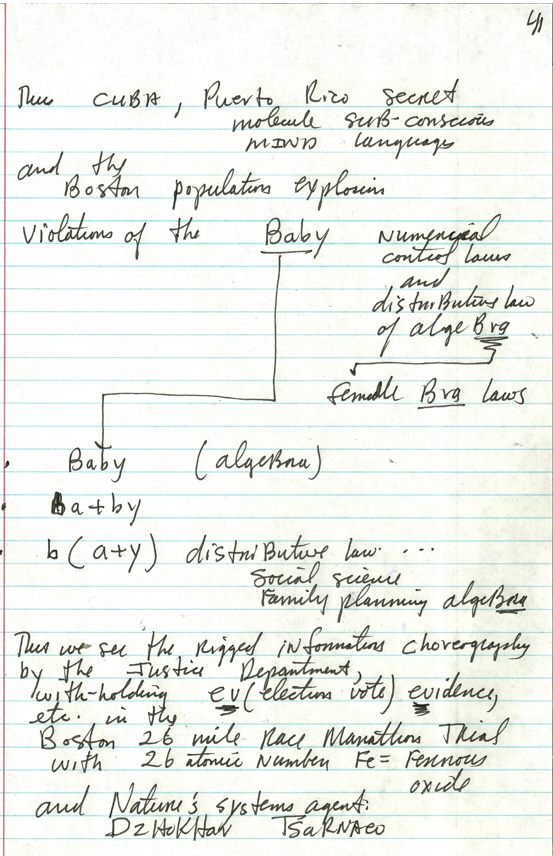 41
Thus CUBA, Puerto Rico secret
molecule sub-conscious
MIND language
and the
Boston population explosion
Violations of the Baby Numerical
control laws
and
distriButive law
of algeBra
female Bra laws
Baby (algeBra)
ba+by
b(a+y) distriButive law....
Social science
Family planning algeBra
Thus we see the Rigged iNformation choreography
by the Justice Department,
with-holding ev (election vote) evidence,
etc. in the
Boston 26 mile Race Marathon Trial
with 26 atomic Number Fe = Ferrous
oxide
and Nature's systems agent:
DzHoKHar TSaRNAeo